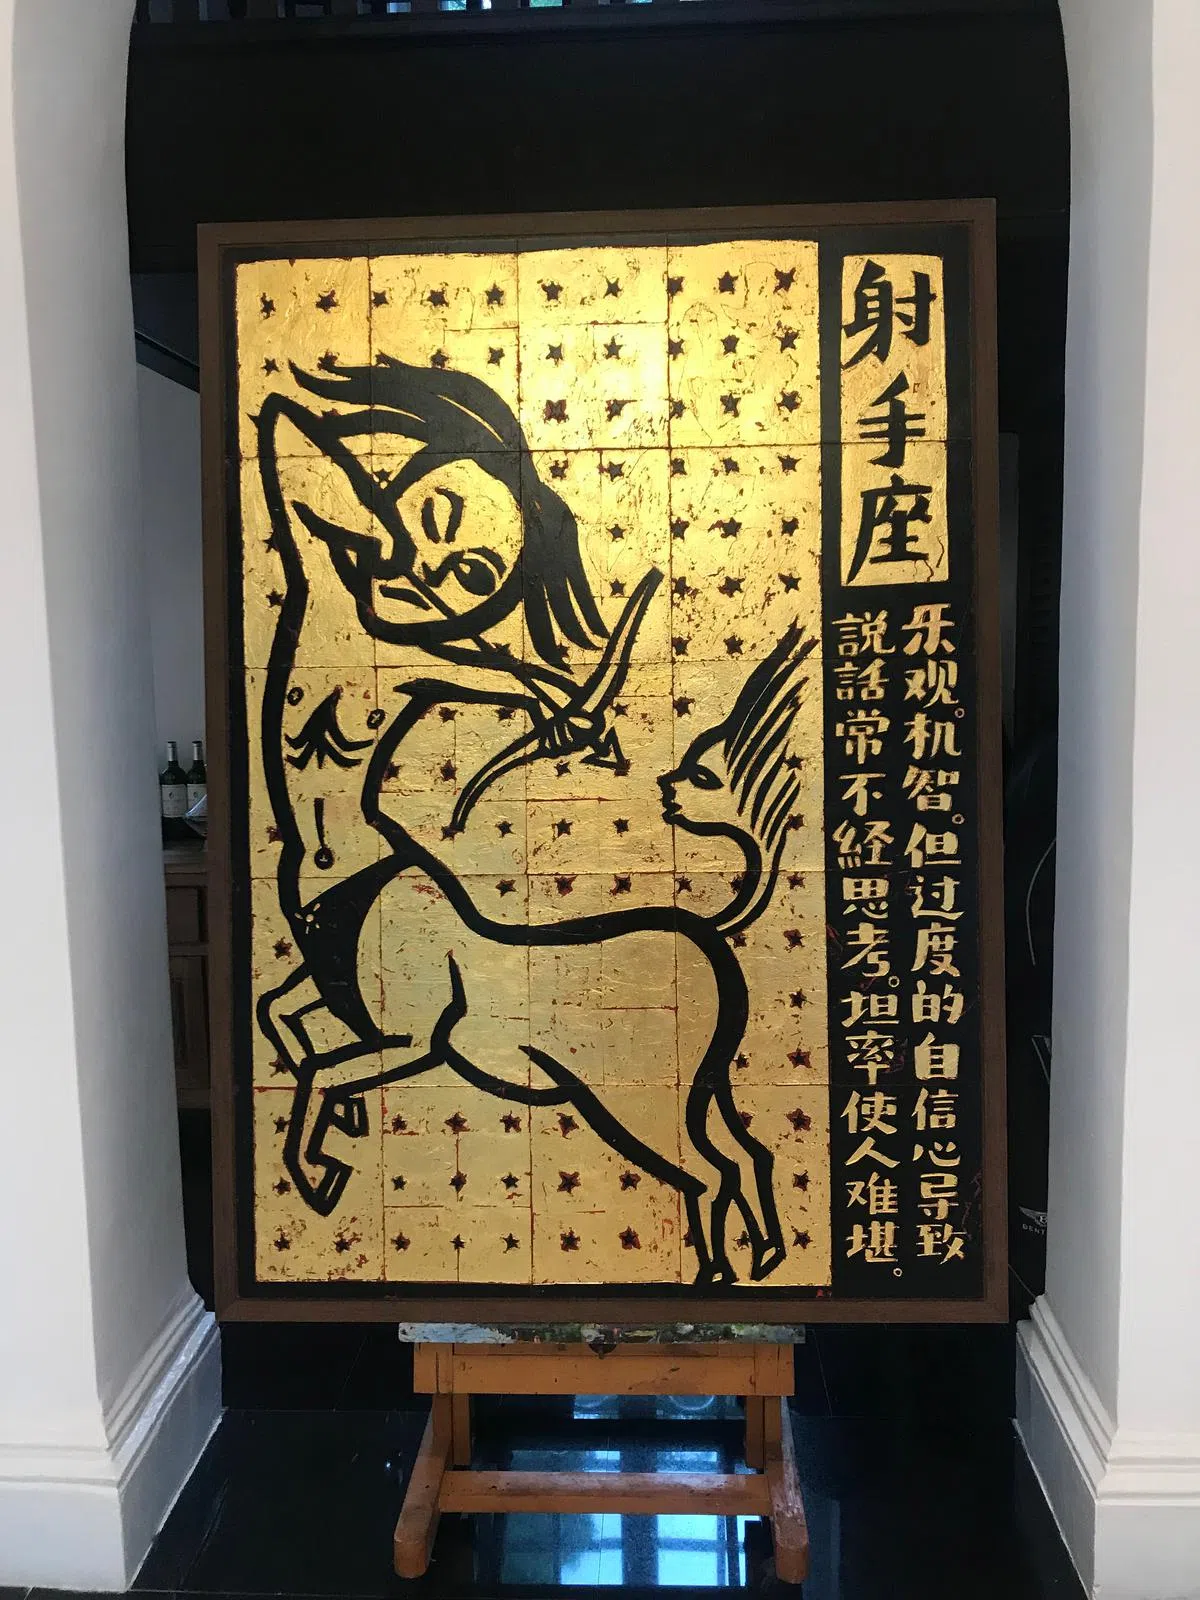 射手座
乐观。机智。但过度的自信心导致
説話常不経思考。坦率使人难堪。